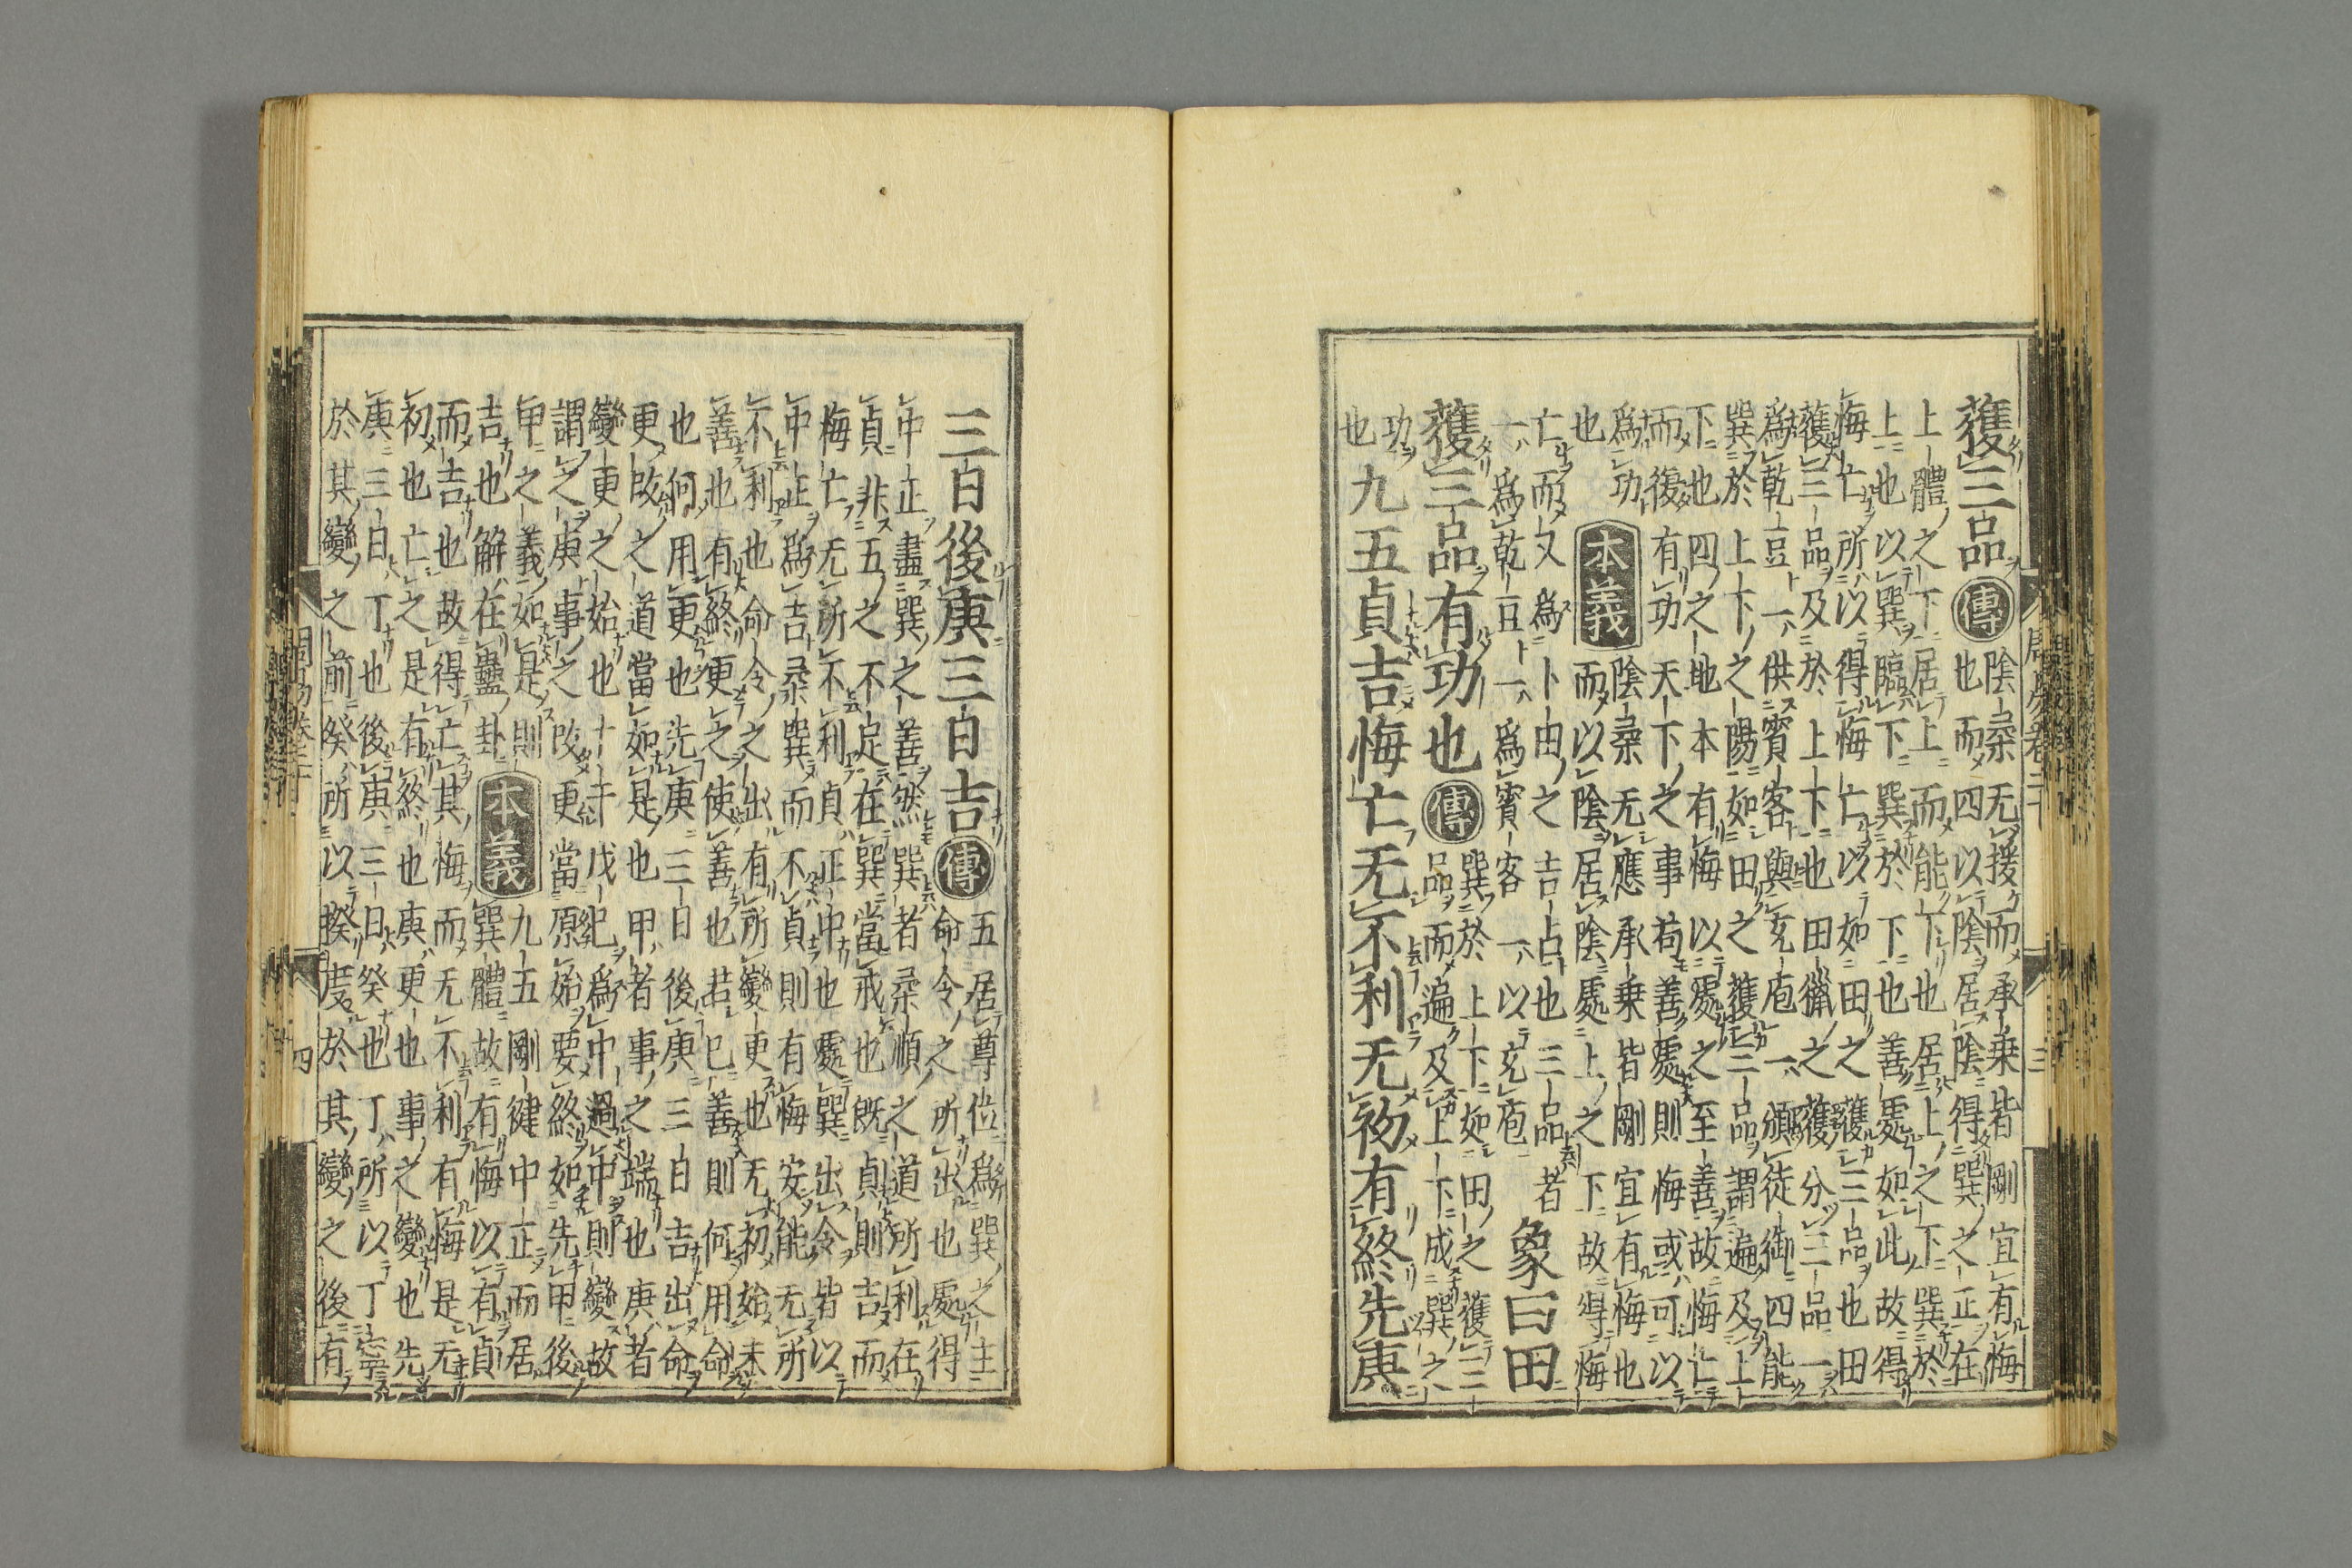 獲三品 傳 陰柔无援而承乗皆剛宜有悔
也而四以陰居陰得巽之正在
上體之下居上而能下也居上之下巽於
上也以巽臨下巽於下也善處如此故得
悔亡所以得悔亡以如田之獲三品也田
獲三品及於上下也田獵之獲分三品一
爲乾豆一供賓客與充庖一頒徒御四能
巽於上下之陽如田之獲三品謂遍及上
下也四之地本有悔以處之至善故悔亡
而復有功天下之事苟善處則悔或可以
爲功 本義 陰柔无應承乗皆剛宜有悔也
也 而以陰居陰處上之下故得悔
亡而又爲卜由之吉占也三品者
一爲乾豆一爲賓客一以充庖 象曰田
獲三品有功也 傳 巽於上下如田之獲三
品而遍及上下成巽之
功
也 九五貞吉悔亡无不利无初有終先庚
三日後庚三日吉 傳 五居尊位爲巽之主
命令之所出也處得
中正盡巽之善然巽者柔順之道所利在
貞非五之不足在巽當戒也既貞則吉而
悔亡无所不利貞正中也處巽出令皆以
中正爲吉柔巽而不貞則有悔安能无所
不利也命令之出有所變更也无初始未
善也有終更之使善也若已善則何用命
也何用更也先庚三日後庚三日吉出命
更改之道當如是也甲者事之端也庚者
變更之始也十干戊己爲中過中則變故
謂之庚事之改更當原始要終如先甲後
甲之義如是則 本義 九五剛健中正而居
吉也解在蠱卦 巽體故有悔以有貞
而吉也故得亡其悔而无不利有悔是无
初也亡之是有終也庚更也事之變也先
庚三日丁也後庚三日癸也丁所以丁
於其變之前癸所以揆度於其變之後有
四